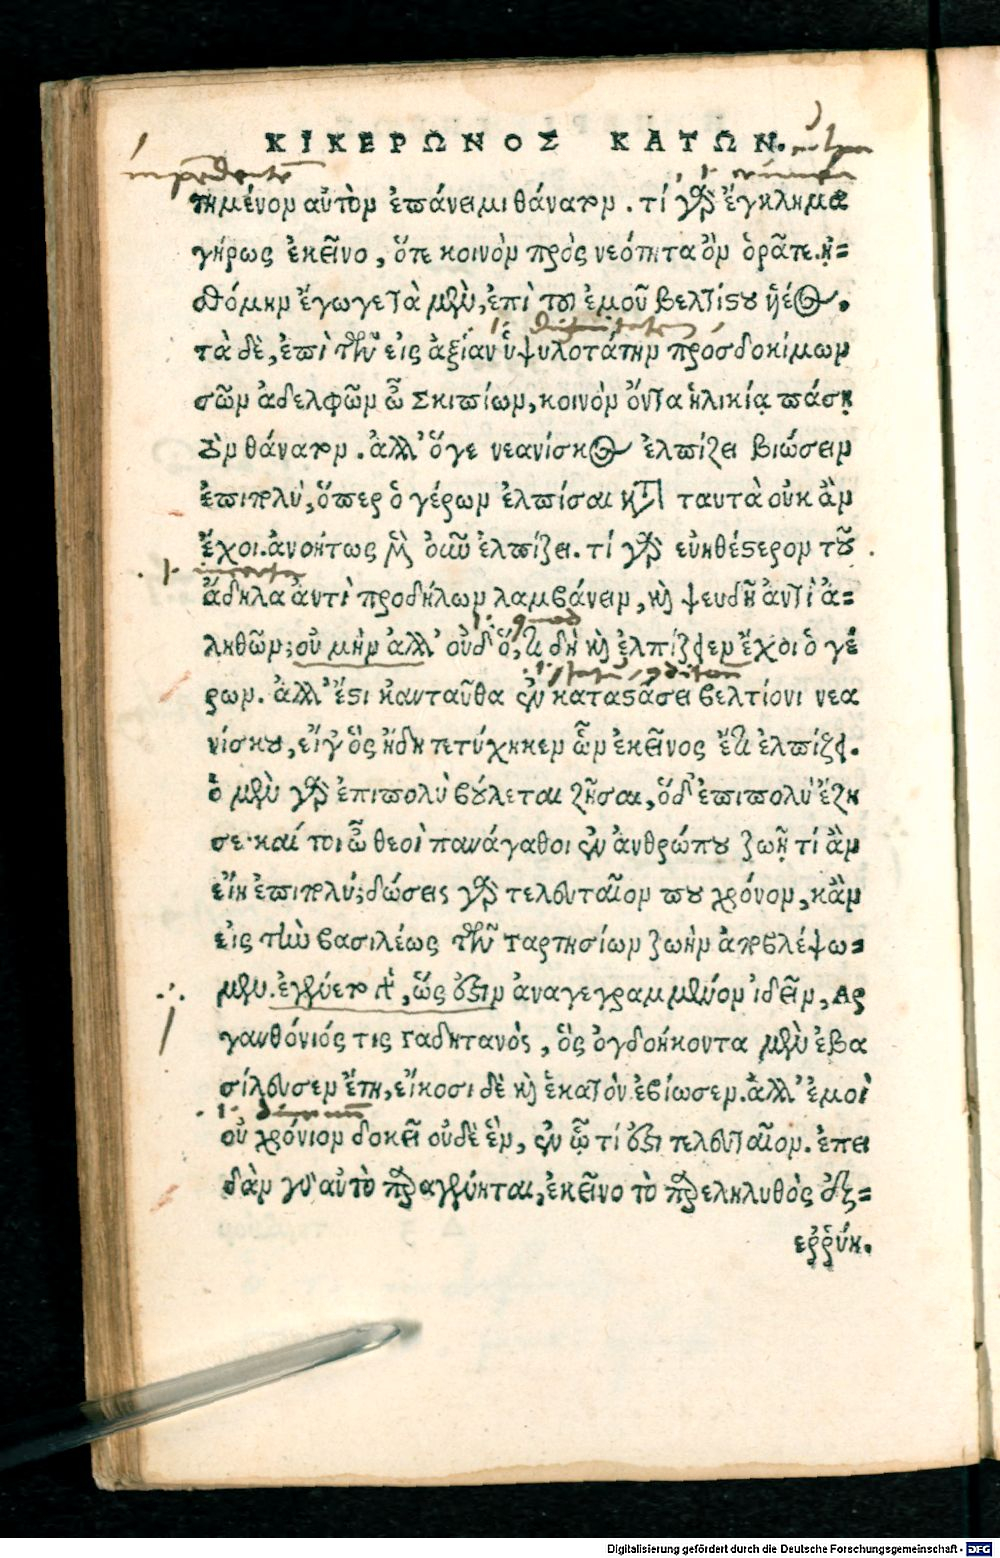 ΚΙΚΕΡΩΝΟΣ ΚΑΤΩΝ.
τημένον αὐτὸν ἐπάνειμι θάνατον. τί γὰρ ἔγκλημα
γήρως ἐκεῖνο, ὅτε κοινὸν πρὸς νεότητα ὂν ὁρᾶτε. ᾐ-
σθόμην ἔγωγε τὰ μὲν, ἐπὶ τοῦ ἐμοῦ βελτίστου ὑέος,
τὰ δὲ, ἐπὶ τῶν εἰς ἀξίαν ὑψηλοτάτην προσδοκίμων
σῶν ἀδελφῶν ὦ Σκιπίων, κοινὸν ὄντα ἡλικίᾳ πάσῃ
τὸν θάνατον. ἀλλ' ὅγε νεανίσκος ἐλπίζει βιώσειν
ἐπιπολὺ, ὅπερ ὁ γέρων ἐλπίσαι κατὰ ταυτὰ οὐκ ἂν
ἔχοι. ἀνοήτως μὲν οὖν ἐλπίζει. τί γὰρ εὐηθέστερον τοῦ
ἄδηλα ἀντὶ προδήλων λαμβάνειν, καὶ ψευδῆ ἀντὶ ἀ-
ληθῶν; οὐ μὴν ἀλλ' οὐδ' ὅ, τι δὴ καὶ ἐλπίζειεν ἔχοι ὁ γέ
ρων. ἀλλ' ἔστι κανταῦθα ἐν καταστάσει βελτίονι νεα
νίσκου, εἴγε ὃς ἤδη τετύχηκεν ὧν ἐκεῖνος ἔτι ἐλπίζει.
ὁ μὲν γὰρ ἐπιπολὺ βούλεται ζῆσαι, ὅδ' ἐπιπολὺ ἔζη
σε. καί τοι ὦ θεοὶ πανάγαθοι ἐν ἀνθρώπου ζωῇ τί ἂν
εἴη ἐπιπολύ; δώσεις γὰρ τελευταῖον που χρόνον, κἂν
εἰς τὴν βασιλέως τῶν Ταρτησίων ζωὴν ἀποβλέψω-
μεν. ἐγένετο γὰρ, ὥς ἐστιν ἀναγεγραμμένον ἰδεῖν, Ἀρ
γανθόνιός τις Γαδητανὸς, ὃς ὀγδοήκοντα μὲν ἐβα
σίλευσεν ἔτη, εἴκοσι δὲ καὶ ἑκατὸν ἐβίωσεν. ἀλλ' ἐμοὶ
οὐ χρόνιον δοκεῖ οὐδὲ ἓν, ἐν ᾧ τί ἐστι τελευταῖον. ἐπει
δὰν γὰρ αὐτὸ παραγένηται, ἐκεῖνο τὸ παρεληλυθὸς ἐξ-
ερρύη.
Digitalisierung gefördert durch die Deutsche Forschungsgemeinschaft - DFG